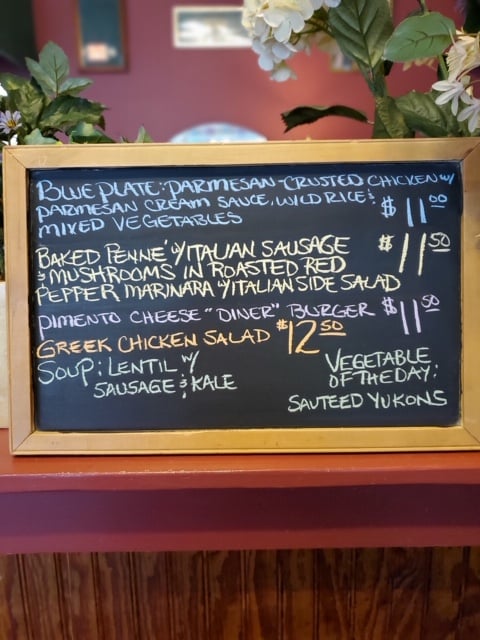 BLUE PLATE: PARMESAN-CRUSTED CHICKEN W/
PARMESAN CREAM SAUCE, WILD RICE &
MIXED VEGETABLES $11.00
BAKED PENNE' W/ITALIAN SAUSAGE $11.50
& MUSHROOMS IN ROASTED RED
PEPPER MARINARA W/ITALIAN SIDE SALAD
PIMENTO CHEESE "DINER" BURGER $11.50
GREEK CHICKEN SALAD $12.50
SOUP: LENTIL W/
SAUSAGE & KALE
VEGETABLE
OF THE DAY:
SAUTEED YUKONS